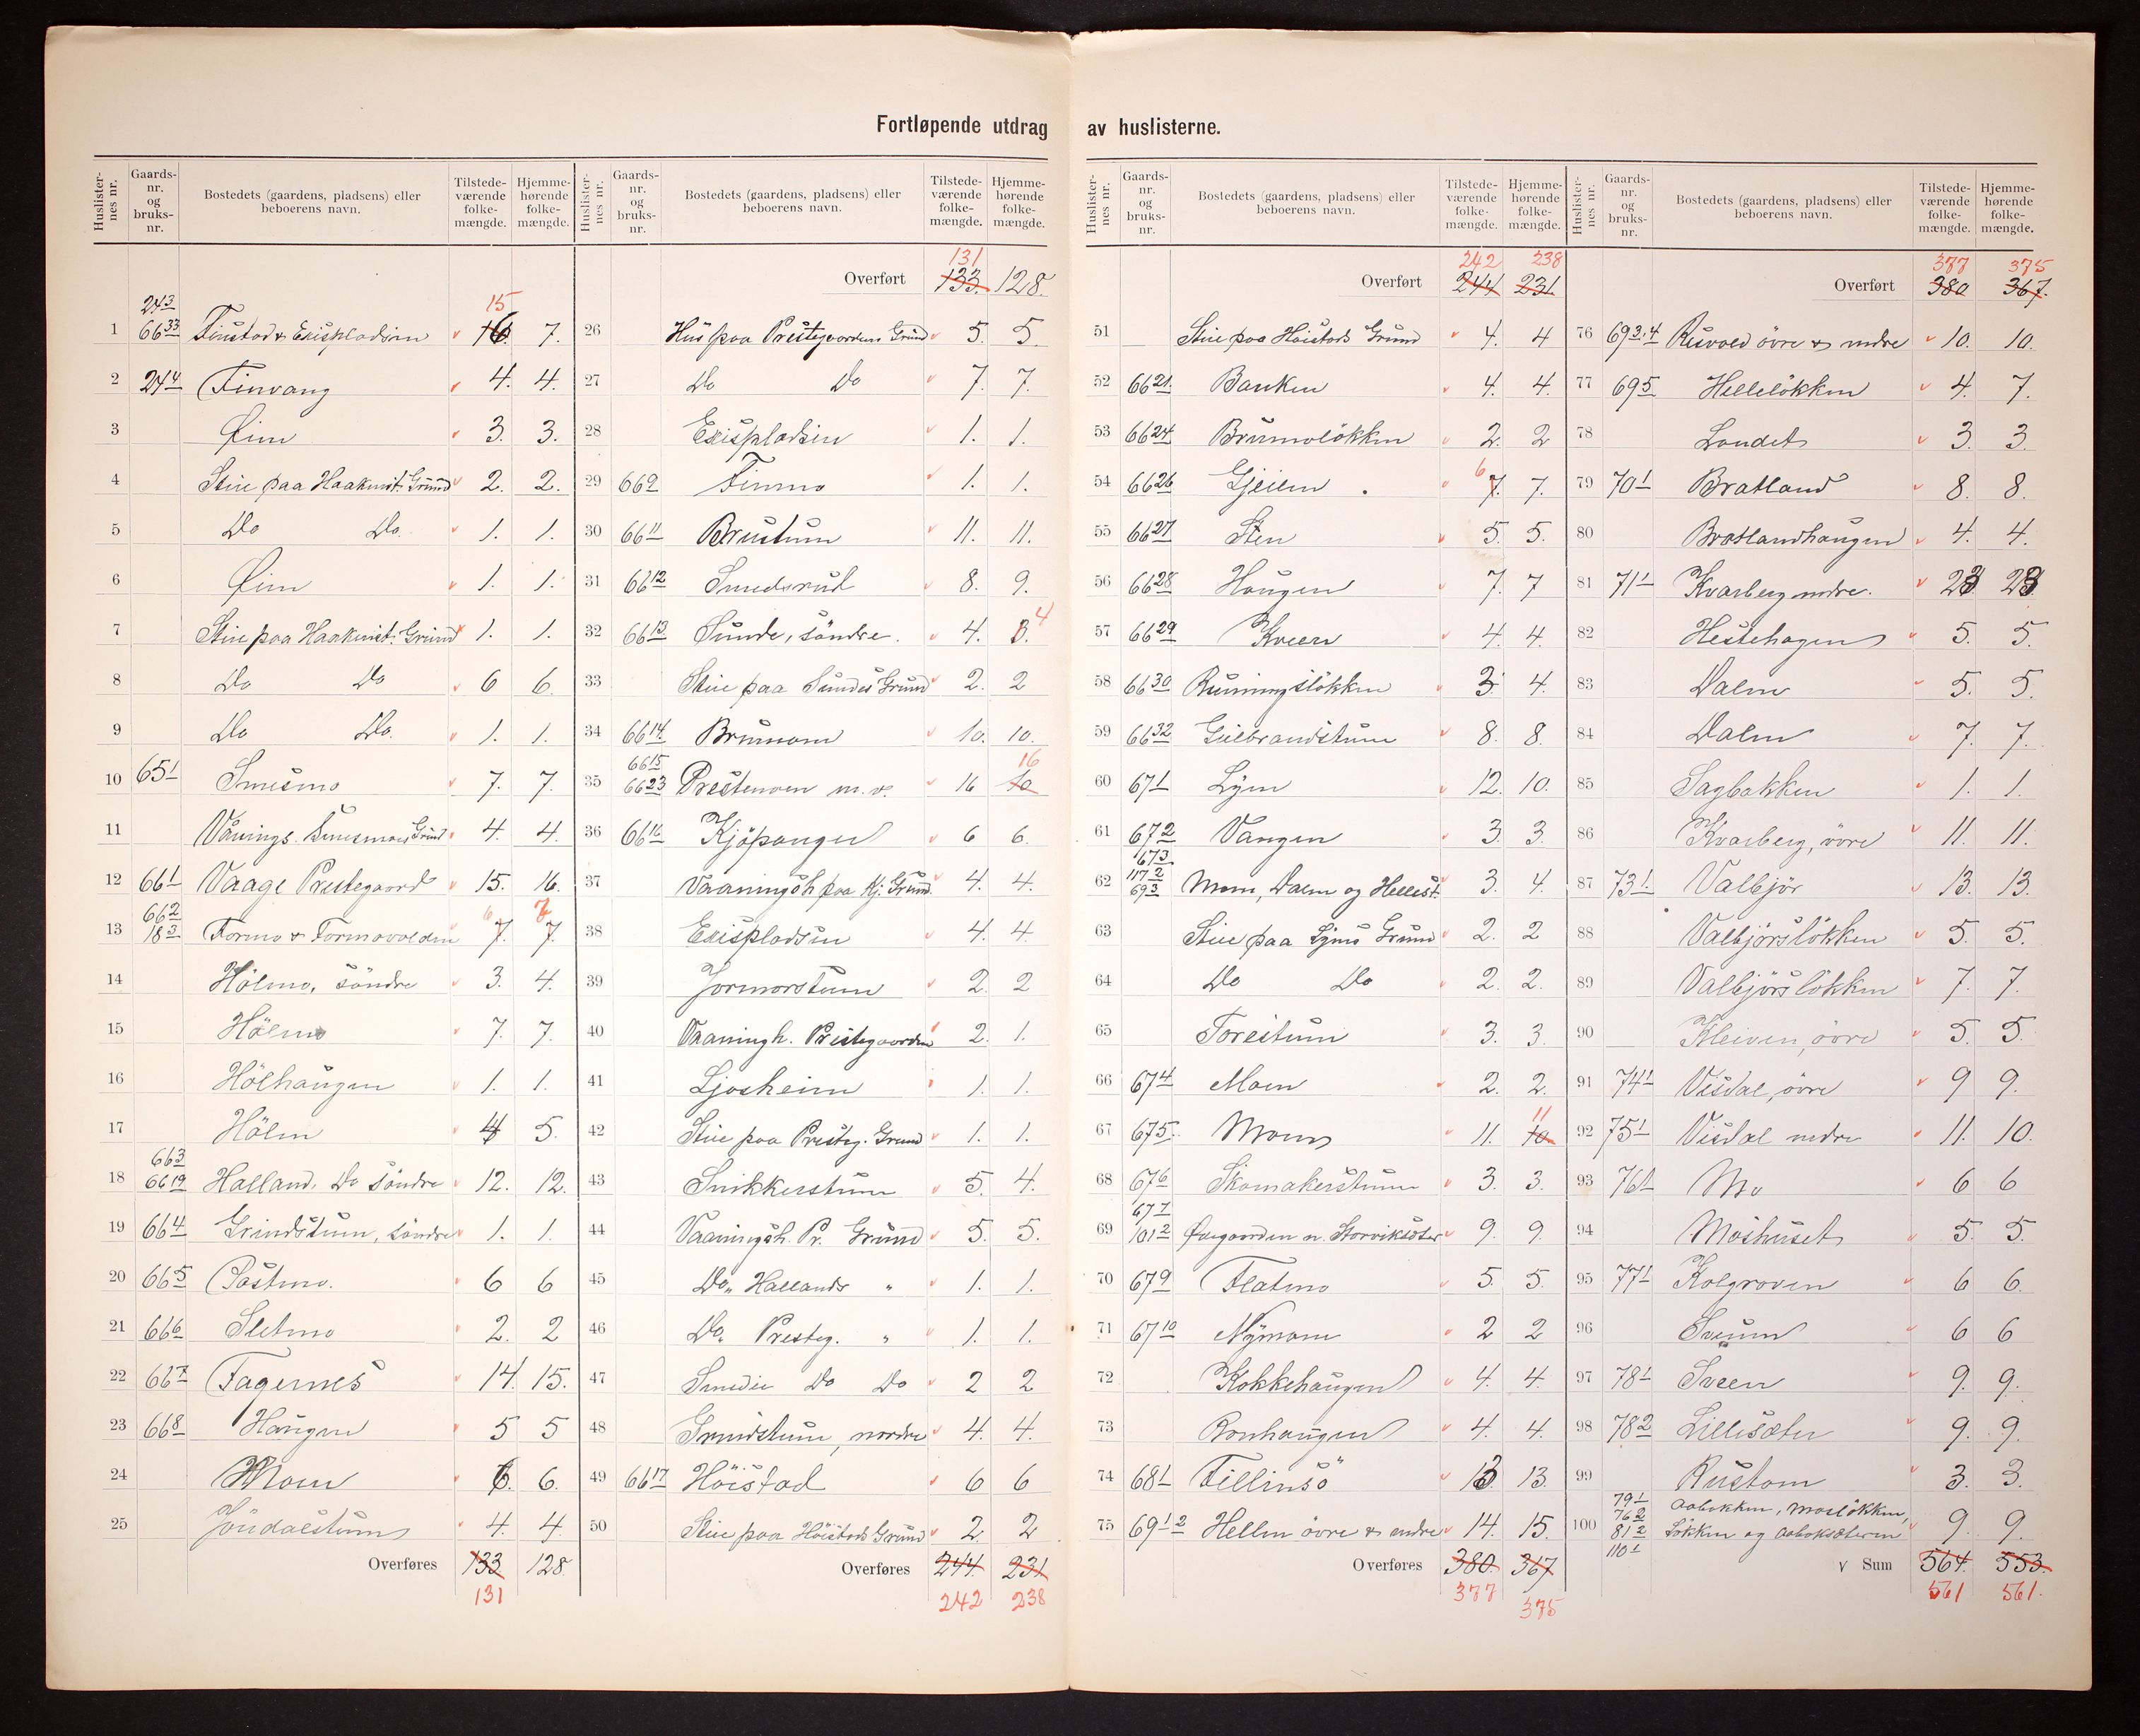 Fortløpende utdrag av huslisterne.
Huslisternes nr. Gaards-nr. og bruks-nr. Bostedets (gaardens, pladsens) eller beboerens navn. Tilstedeværende folkemængde. Hjemmehørende folkemængde.
243
15
1 6633 Finstad & Exispladsen 16. 7.
2 244 Finvang 4. 4.
3 Eim 3. 3.
4 Stue paa Haakenst. Grund 2. 2.
5 Do Do. 1. 1.
6 Eim 1. 1.
7 Stue paa Haakenst. Grund 1. 1.
8 Do Do 6 6.
9 Do Do. 1. 1.
10 651 Smesmo 7. 7.
11 Vånings. Smesmoes Grund 4. 4.
12 661 Vaage Prestegaard 15. 16.
662
6 7
13 183 Formo & Formovolden 7. 7.
14 Hölmo, söndre 3. 4.
15 Hölmo 7. 7.
16 Hölhaugen 1. 1.
17 Hölm 4 5.
663
18 6619 Halland. Do Söndre 12. 12.
19 664 Grindstum, söndre 1. 1.
20 665 Pastmo. 6 6
21 666 Sletmo 2. 2
22 667 Fagernes 14. 15.
23 668 Haugen 5 5
24 Moen 6. 6.
25 Jöndalstum 4. 4.
Overføres 133 128
131
Huslisternes nr. Gaards-nr. og bruks-nr. Bostedets (gaardens, pladsens) eller beboerens navn. Tilstedeværende folkemængde. Hjemmehørende folkemængde.
131
Overført 133. 128.
26 Hus paa Prestegaardens Grund 5. 5.
27 Do Do 7. 7.
28 Exispladsen 1. 1.
29 669 Finmo 1. 1.
30 6611 Brustum 11. 11.
31 6612 Smedsrud 8. 9.
4
32 6613 Sunde, söndre. 4. 3.
33 Stue paa Sundes Grund 2. 2
34 6614. Brumoen 10. 10.
6615
16
35 6623 Prestemoen m.v. 16 10
36 6616 Kjöpanger 6 6.
37 Vaaningsh paa Kj. Grund. 4. 4.
38 Exispladsen 4. 4.
39 Jormorstuen 2. 2
40 Vaaningh. Prestegaarden 2. 1.
41 Ljosheim 1. 1.
42 Stue paa Presteg. Grund 1. 1.
43 Snikkerstuen 5. 4.
44 Vaaningsh. Pr. Grund 5. 5.
45 Do „ Hallands „ 1. 1.
46 Do. Presteg. „ 1. 1.
47 Smedie Do Do 2 2
48 Grindstuen, nordre 4. 4.
49 6617 Höistad 6 6
50 Stue paa Höistads Grund 2. 2
Overføres 244. 231
242 238
Huslisternes nr. Gaards-nr. og bruks-nr. Bostedets (gaardens, pladsens) eller beboerens navn. Tilstedeværende folkemængde. Hjemmehørende folkemængde.
242 238
Overført 244 231.
51 Stue paa Höistads Grund 4. 4
52 6621. Banken 4. 4.
53 6624. Brumolökken 2. 2
6
54 6626 Gjeilen 7. 7.
55 6627 Sten 5. 5.
56 6628 Haugen 7. 7
57 6629 Kvern 4. 4.
58 6630 Runningslökken 3. 4.
59 6632 Gulbrandstuen 8. 8.
60 671 Lÿen 12. 10.
61 672 Vangen 3. 3.
673
1172
62 693 Moen, Dalen og Hellest. 3. 4.
63 Stue paa Lÿens Grund 2. 2
64 Do Do 2. 2.
65 Torestuen 3. 3.
66 674 Moen 2. 2.
11
67 675. Moen 11. 10
68 676 Skomakerstuen 3. 3.
677
69 1012 Øvregaarden n. Storviksæter 9. 9.
70 679 Flatmo 5. 5.
71 6710 Nÿmoen 2 2
72 Kokkehaugen 4. 4.
73 Ronhaugen 4. 4.
74 681 Tillinsö 13 13.
75 6912 Hellen övre & nedre 14. 15.
Overføres 380. 367
377 375
Huslisternes nr. Gaards-nr. og bruks-nr. Bostedets (gaardens, pladsens) eller beboerens navn. Tilstedeværende folkemængde. Hjemmehørende folkemængde.
377 375
Overført 380 367.
76 693.4 Risvold övre & nedre 10. 10.
77 695 Hellelökken 4. 7.
78 Loudet 3. 3.
79 701 Bratland 8. 8.
80 Bratlandhaugen 4. 4.
81 711 Kvarberg nedre. 23 23
82 Hestehagen 5. 5.
83 Dalen 5. 5.
84 Dalen 7. 7.
85 Sagbakken 1. 1.
86 Kvarberg, övre 11. 11.
87 731. Valbjör 13. 13.
88 Valbjörslökken 5. 5.
89 Valbjörslökken 7. 7.
90 Kleiven, övre 5. 5.
91 741 Visdal, övre 9 9.
92 751 Visdal nedre 11. 10.
93 761 Mo 6 6
94 Moshuset 5. 5.
95 771 Kolgroven 6 6.
96 Sveum 6 6
97 781 Sveen 9. 9.
98 782 Lillesæter 9. 9.
99 Rustom 3. 3.
791
762 Aabakken, Moslökken,
100 812 Lökken og Aaboksæteren 9. 9.
1101
v Sum 564. 553.
561 561.